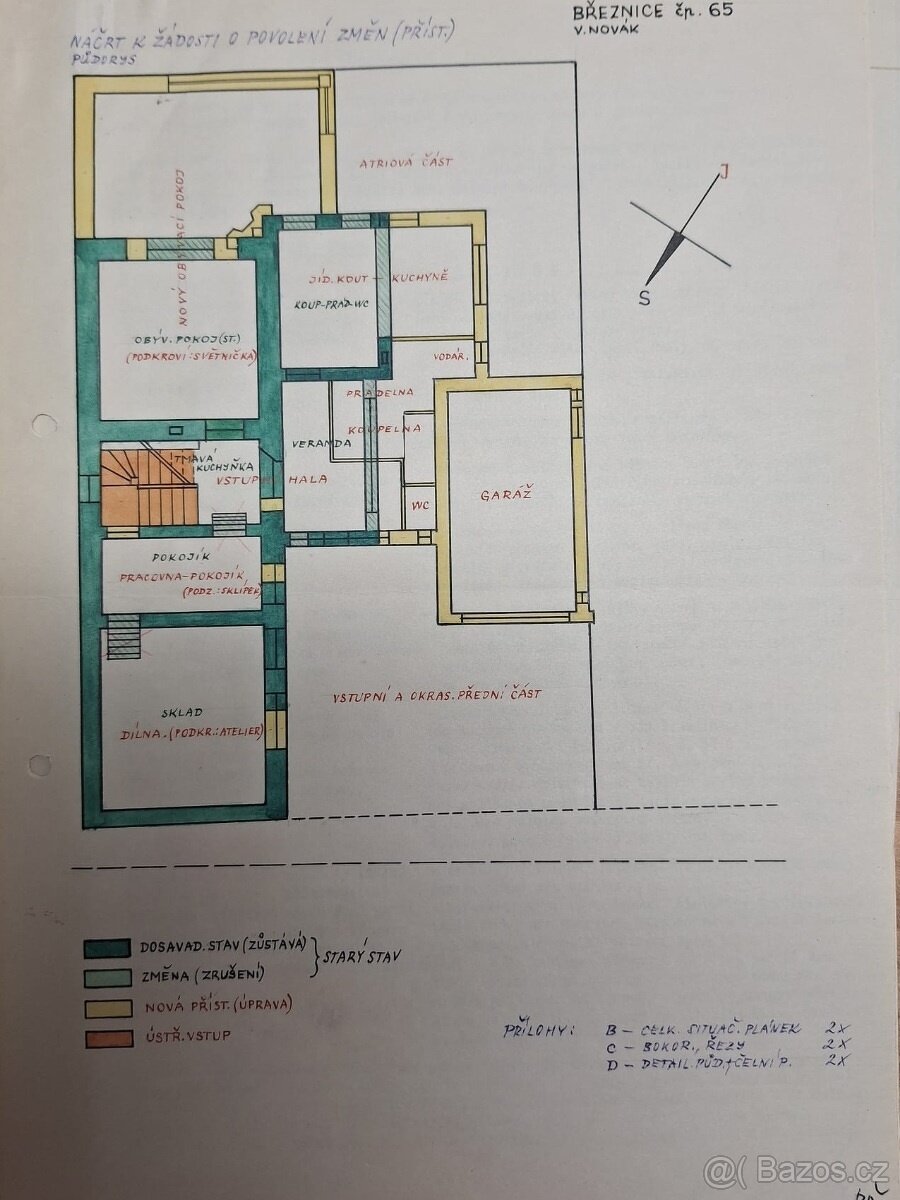 BŘEZNICE čp. 65
V. NOVÁK
NÁČRT K ŽÁDOSTI O POVOLENÍ ZMĚN (PŘÍST.)
PŮDORYS
ATRIOVÁ ČÁST
J
S
NOVÝ OBÝVACÍ POKOJ
JÍD. KOUT - KUCHYNĚ
KOUP-PRÁD-WC
OBÝV. POKOJ (ST.)
(PODKROVÍ: SVĚTNIČKA)
VODÁR.
PRÁDELNA
KOUPELNA
VERANDA
TMAVÁ
KUCHYŇKA
VSTUPNÍ HALA
WC
GARÁŽ
POKOJÍK
PRACOVNA-POKOJÍK
(PODZ.: SKLÍPEK)
VSTUPNÍ A OKRAS. PŘEDNÍ ČÁST
SKLAD
DÍLNA. (PODKR.: ATELIER)
DOSAVAD. STAV (ZŮSTÁVÁ)
ZMĚNA (ZRUŠENÍ)
STARÝ STAV
NOVÁ PŘÍST. (ÚPRAVA)
ÚSTŘ. VSTUP
PŘÍLOHY: B - CELK. SITUAČ. PLÁNEK 2X
C - BOKOR., ŘEZY 2X
D - DETAIL. PŮD. + ČELNÍ P. 2X
@( Bazos.cz